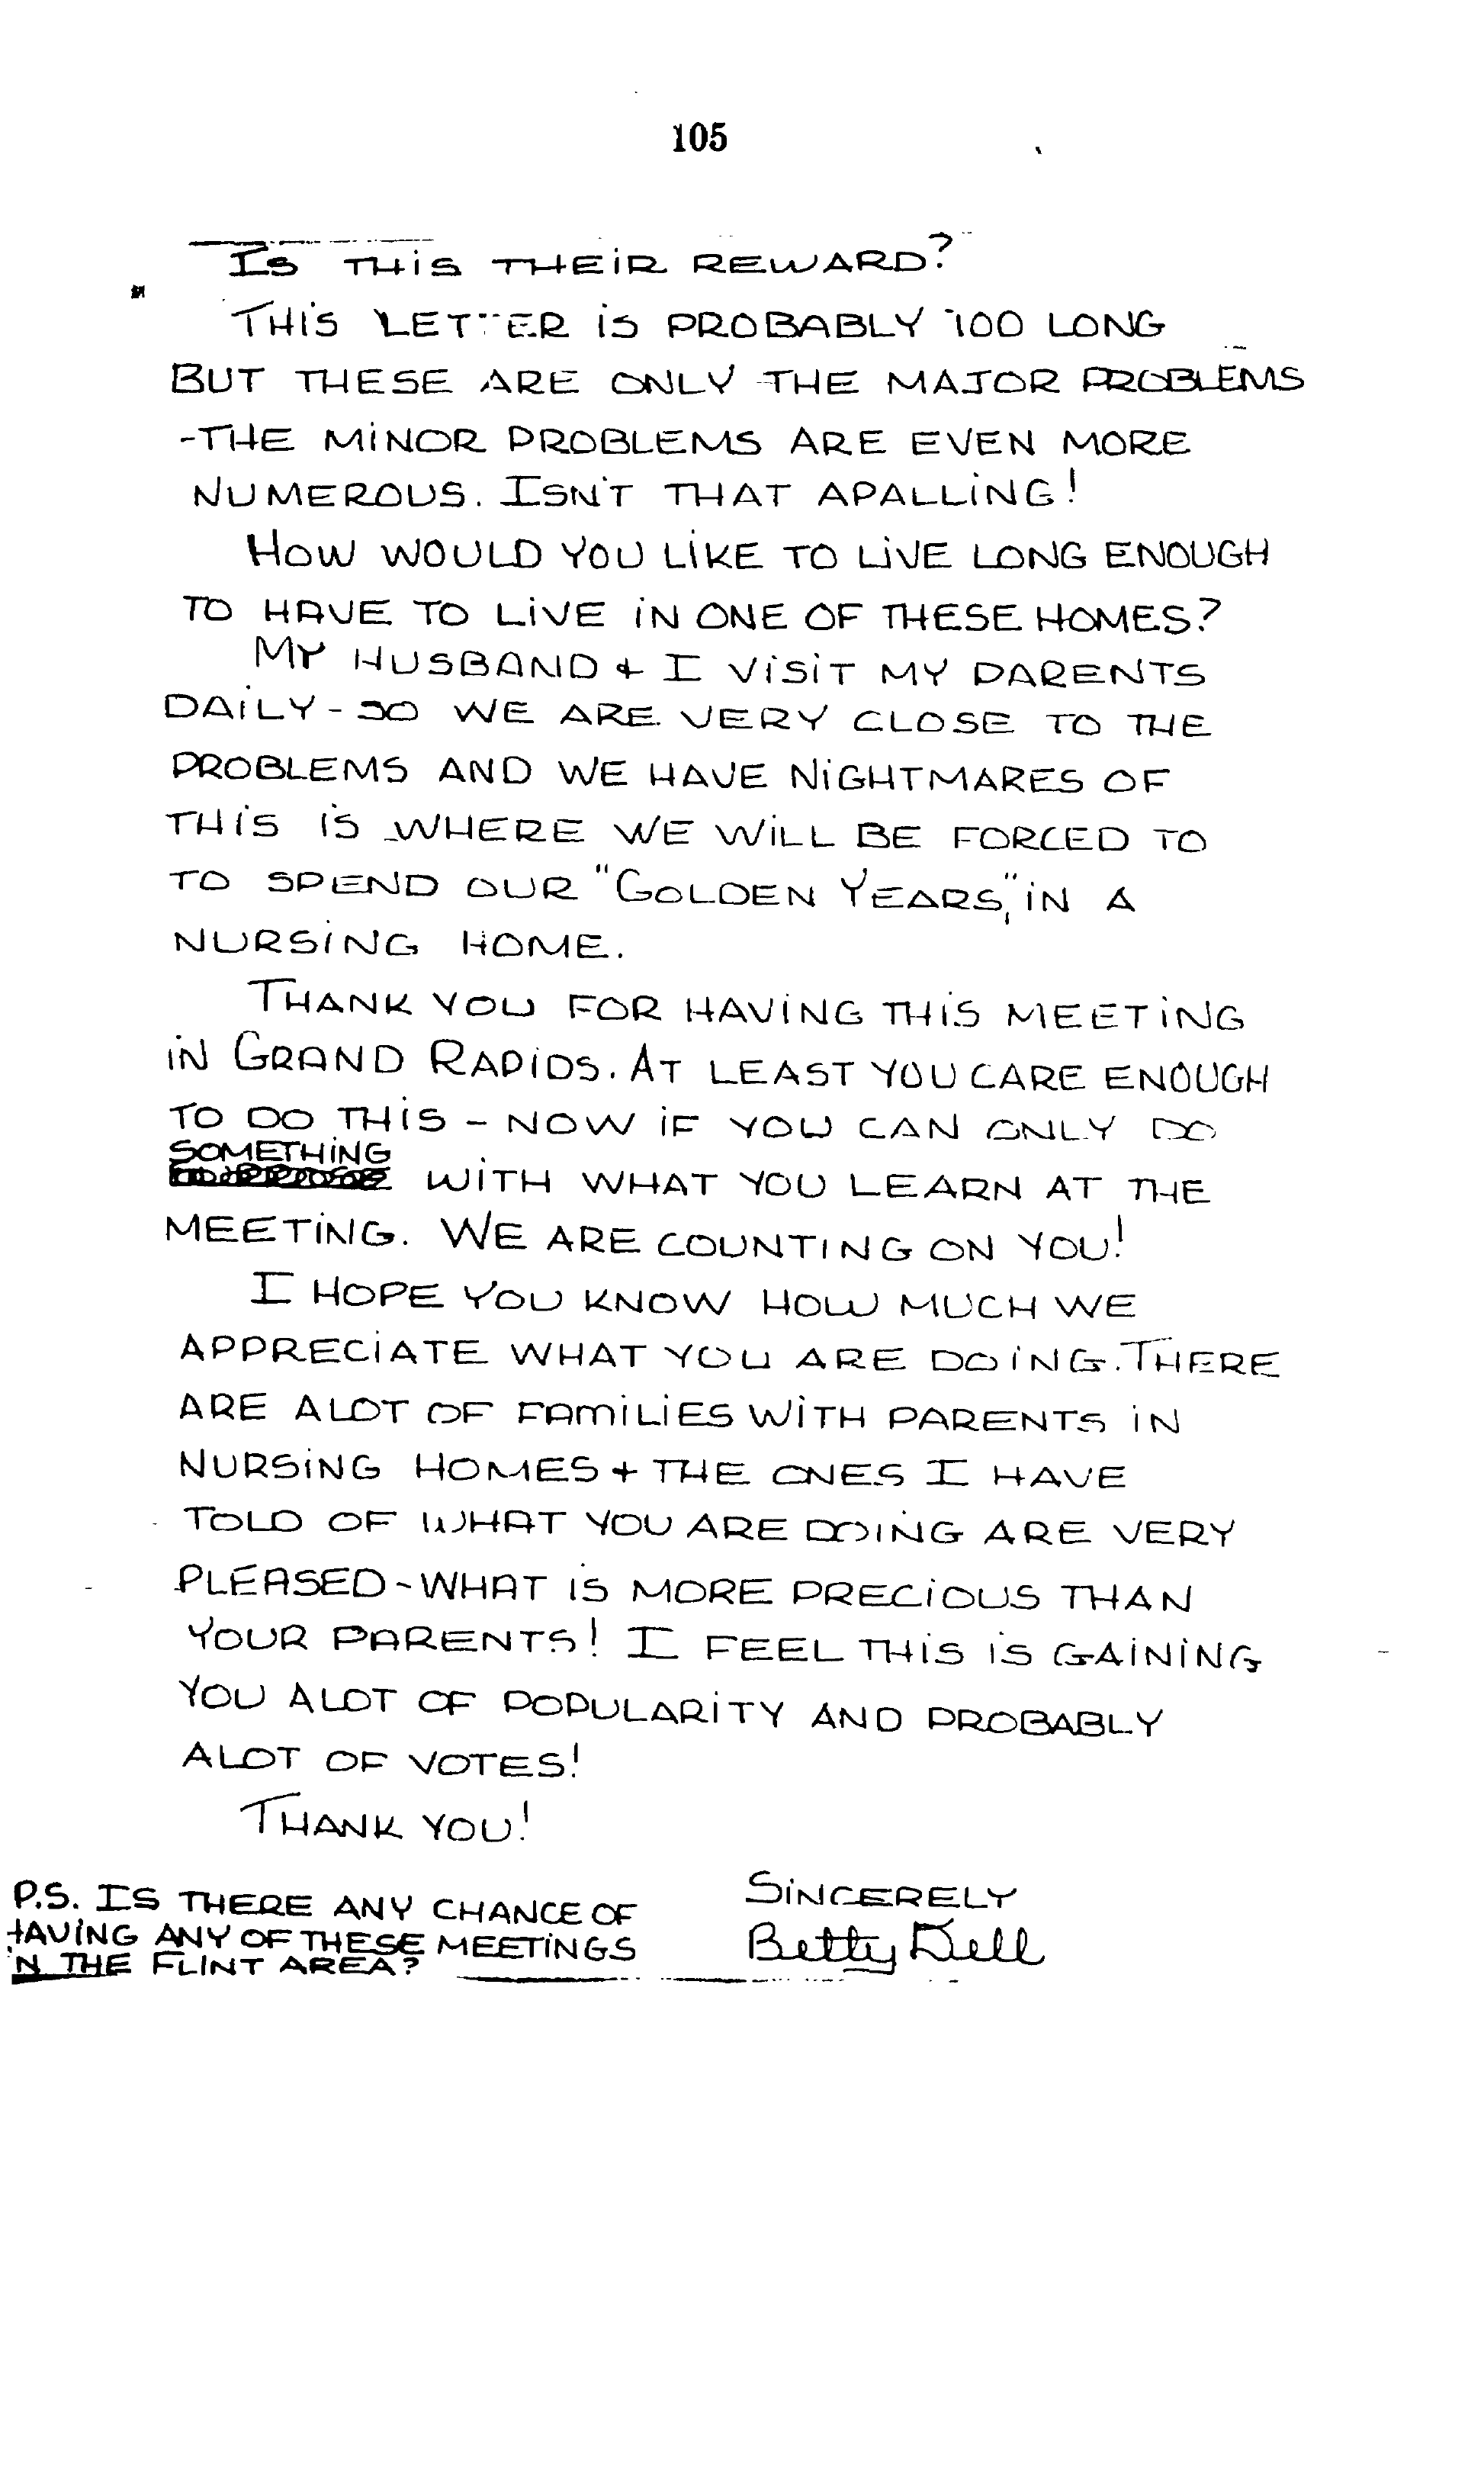 105
Is THiS THEIR REWARD?
THIS LETTER IS PROBABLY TOO LONG
BUT THESE ARE ONLY THE MAJOR PROBLEMS
-THE MINOR PROBLEMS ARE EVEN MORE
NUMEROUS. ISN'T THAT APALLING!
HOW WOULD YOU LIKE TO LIVE LONG ENOUGH
TO HAVE TO LIVE IN ONE OF THESE HOMES?
MY HUSBAND + I VISIT MY PARENTS
DAILY - SO WE ARE VERY CLOSE TO THE
PROBLEMS AND WE HAVE NIGHTMARES OF
THIS IS WHERE WE WILL BE FORCED TO
TO SPEND OUR "GOLDEN YEARS," IN A
NURSING HOME.
THANK YOU FOR HAVING THIS MEETING
IN GRAND RAPIDS. AT LEAST YOU CARE ENOUGH
TO DO THIS - NOW IF YOU CAN ONLY DO
SOMETHING
WITH WHAT YOU LEARN AT THE
MEETING. WE ARE COUNTING ON YOU!
I HOPE YOU KNOW HOW MUCH WE
APPRECIATE WHAT YOU ARE DOING. THERE
ARE ALOT OF FAMILIES WITH PARENTS IN
NURSING HOMES + THE ONES I HAVE
TOLD OF WHAT YOU ARE DOING ARE VERY
PLEASED - WHAT IS MORE PRECIOUS THAN
YOUR PARENTS! I FEEL THIS IS GAINING
YOU ALOT OF POPULARITY AND PROBABLY
ALOT OF VOTES!
THANK YOU!
SINCERELY
Betty Dell
P.S. IS THERE ANY CHANCE OF
HAVING ANY OF THESE MEETINGS
IN THE FLINT AREA?